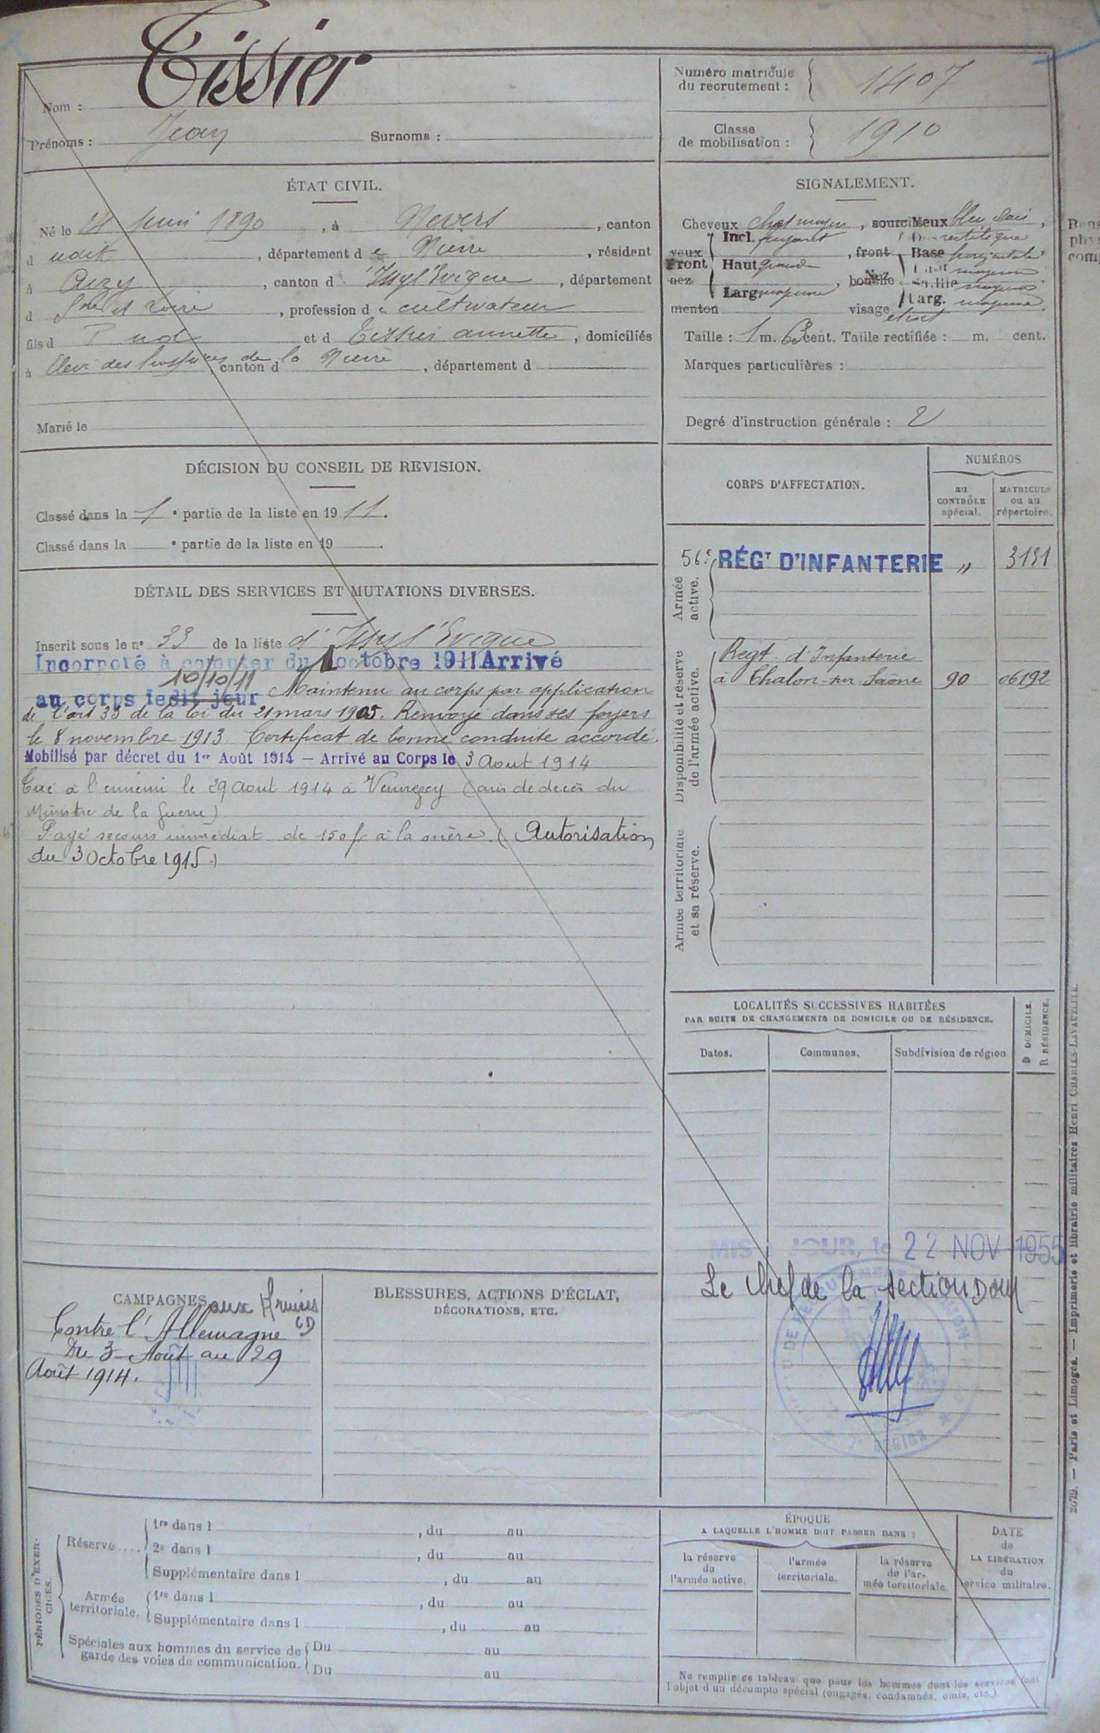 Tissier
Nom :
Prénoms : Jean Surnoms :
Numéro matricule
du recrutement : 1407
Classe
de mobilisation : 1910
ÉTAT CIVIL.
Né le juin 1890, à Nevers, canton
dudit, département de Nièvre, résident
à Cuzy, canton d'Issy l'Evêque, département
d Sne et Loire, profession de cultivateur
fils d et d Tissier Annette, domiciliés
à canton d de la Nièvre, département d
Marié le
SIGNALEMENT.
Cheveux chat moyen, sourcils yeux bleu clair,
yeux Incl. fuyant, front Base
Front Haut grande
nez Nez bouche Saillie moyenne
Larg moyenne Larg. moyenne
menton visage étroit
Taille : 1 m. cent. Taille rectifiée : m. cent.
Marques particulières :
Degré d'instruction générale : 2
DÉCISION DU CONSEIL DE REVISION.
Classé dans la 1e partie de la liste en 1911.
Classé dans la e partie de la liste en 19 .
DÉTAIL DES SERVICES ET MUTATIONS DIVERSES.
Inscrit sous le no 33 de la liste d'Issy l'Evêque
Incorporé à compter du 1 octobre 1911 Arrivé
10/10/11
au corps ledit jour Maintenu au corps par application
de l'art 33 de la loi du 21 mars 1905. Renvoyé dans ses foyers
le 8 novembre 1913 Certificat de bonne conduite accordé.
Mobilisé par décret du 1er Août 1914 — Arrivé au Corps le 3 Aout 1914
Tué à l'ennemi le 29 Aout 1914 à Vennezey (avis de décès du
Ministre de la Guerre)
Payé secours immédiat de 150f à la mère. (Autorisation
du 3 Octobre 1915.)
CORPS D'AFFECTATION.
NUMÉROS
au
CONTRÔLE
spécial.
MATRICULE
ou au
répertoire.
Armée
active.
56e RÉGT D'INFANTERIE " 3131
Disponibilité et réserve
de l'armée active.
Regt d'Infanterie
à Chalon-sur-Saône 90 06192
Armée territoriale
et sa réserve.
LOCALITÉS SUCCESSIVES HABITÉES
PAR SUITE DE CHANGEMENTS DE DOMICILE OU DE RÉSIDENCE.
D DOMICILE.
R RÉSIDENCE.
Dates.
Communes.
Subdivision de région
MIS A JOUR, le 22 NOV 1955
Le Chef de la section
CAMPAGNES aux Armées
CD
Contre l'Allemagne
Du 3 Août au 29
Août 1914.
BLESSURES, ACTIONS D'ÉCLAT,
DÉCORATIONS, ETC.
PÉRIODES D'EXER-
CICES.
Réserve
1re dans l , du au
2e dans l , du au
Supplémentaire dans l , du au
Armée
territoriale.
1re dans l , du au
Supplémentaire dans l , du au
Spéciales aux hommes du service de
garde des voies de communication.
Du au
Du au
ÉPOQUE
A LAQUELLE L'HOMME DOIT PASSER DANS :
la réserve
de
l'armée active.
l'armée
territoriale.
la réserve
de l'ar-
mée territoriale.
DATE
de
LA LIBÉRATION
du
service militaire.
Ne remplir ce tableau que pour les hommes dont les services font
l'objet d'un décompte spécial (engagés, condamnés, omis, etc.).
— Paris et Limoges. — Imprimerie et librairie militaires Henri CHARLES-LAVAUZELLE.